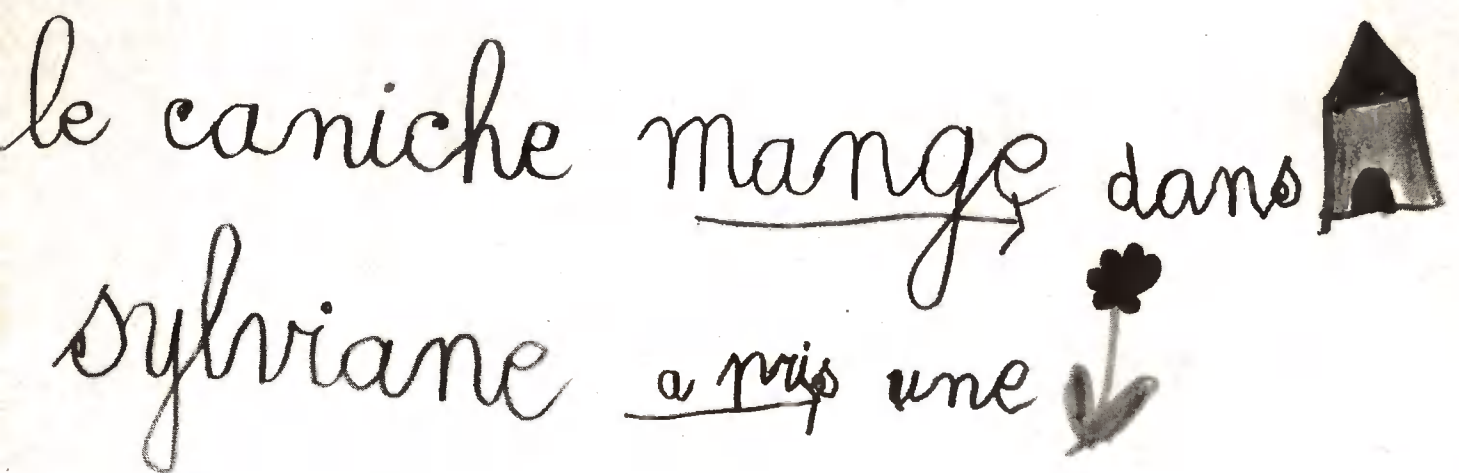 le caniche mange dans
sylviane a pris une